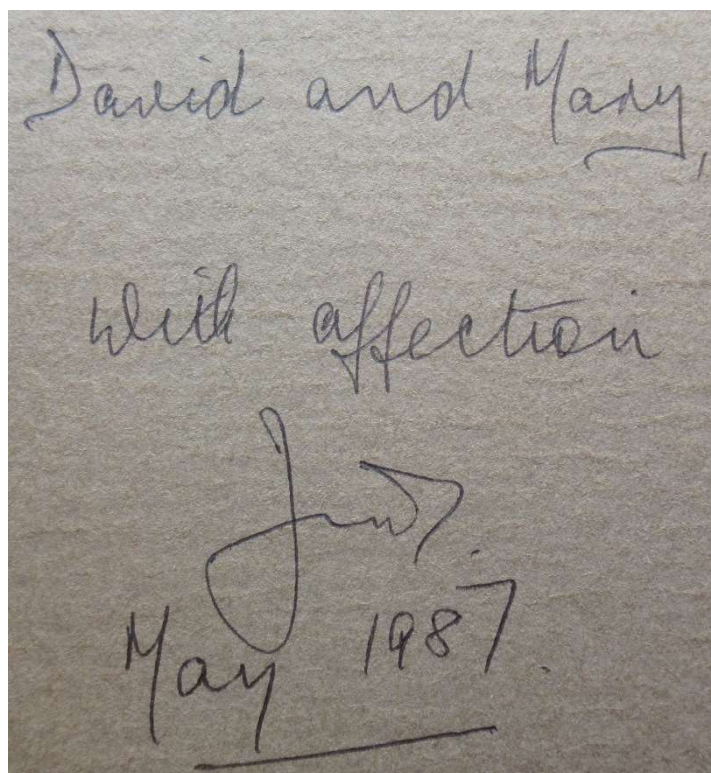 David and Mary,
with affection
May 1987.